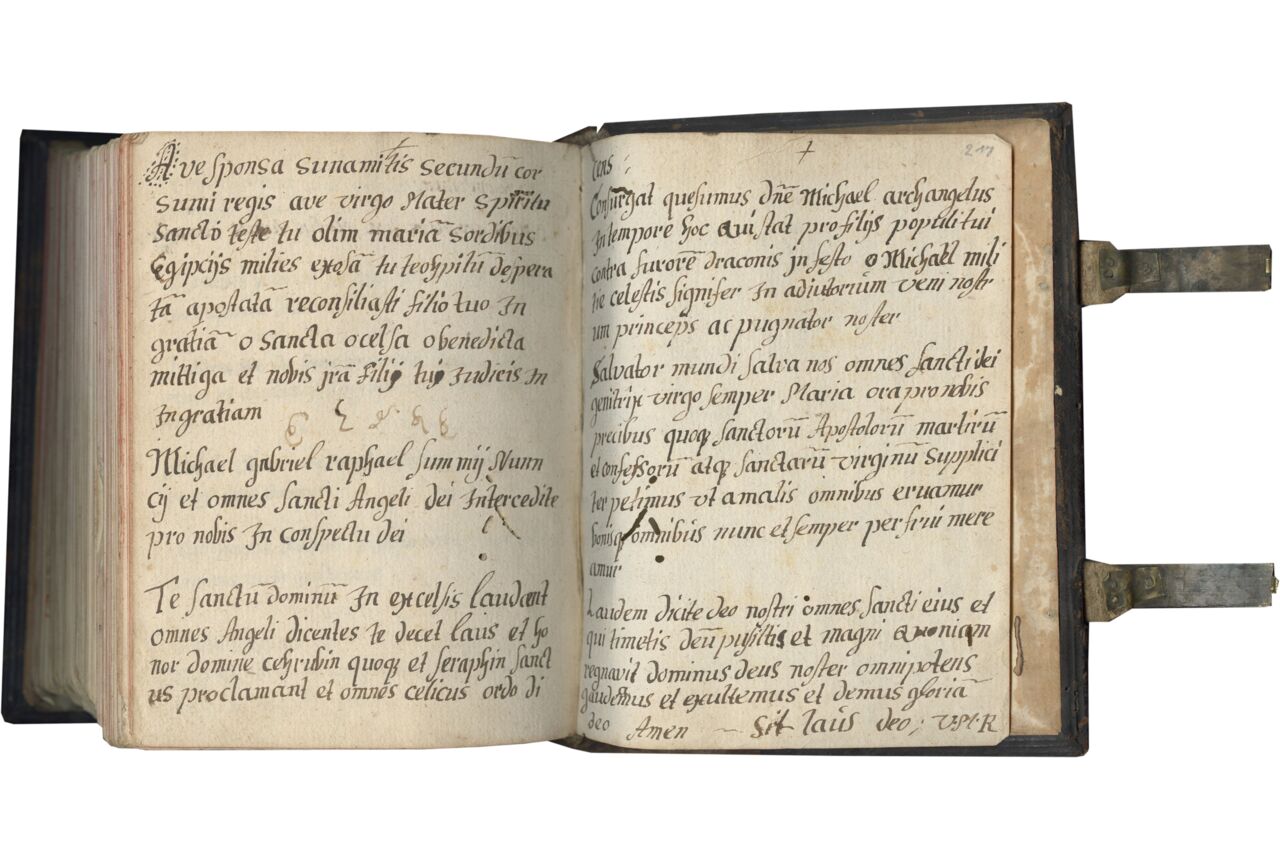 Ave sponsa sunamitis secundū cor
sumi regis ave virgo Mater spiritu
sancto teste tu olim mariā sordibus
Egipcijs milies exosā tu teohpilū despera
tā apostatā reconsiliasti filio tuo in
gratiā o sancta o celsa o benedicta
mittiga et nobis jrā filij tuj Judicis In
Ingratiam
Michael gabriel raphael summij Nunn
cij et omnes sancti Angeli dei Intercedite
pro nobis In conspectu dei
Te sanctū dominū In excelsis laudant
omnes Angeli dicentes te decet laus et ho
nor domine cehrubin quoqꝫ et seraphin sanct
us proclamant et omnes celicus ordo di
217
cens
Consurgat quesumus dn̄e Michael archangelus
In tempore hoc qui stat pro filijs populi tui
contra furorē draconis jn festo o Michaēl mili
tie celestis signifer In adiutoriūm veni nostr
um princeps ac pugnator noster
Salvator mundi salva nos omnes sancti dei
genitrix virgo semper Maria ora pro nobis
precibus quoqꝫ sanctorū Apostolorū martirū
et confessorū atqꝫ sanctarū virginū supplici
ter petimus vt a malis omnibus eruamur
bonisqꝫ omnibus nunc et semper perfrui mere
amur
Laudem dicite deo nostri omnes sancti eius et
qui timetis deū pusillis et magni Quoniam
regnavit dominus deus noster omnipotens
gaudemus et exultemus et demus gloriā
deo Amen — Sit laus deo; V·S·I·R